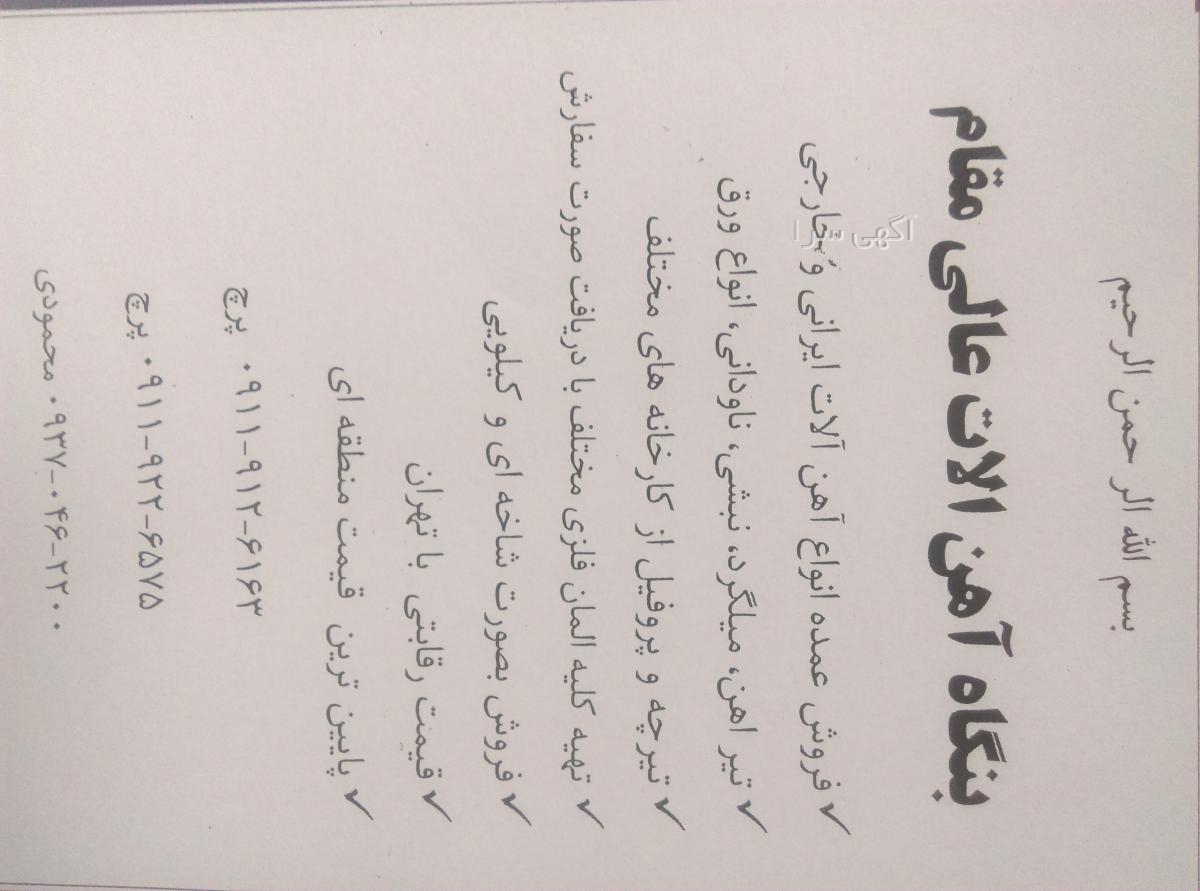 بسم الله الر حمن الر حیم
بنگاه آهن الات عالی مقام
✓ فروش عمده انواع آهن آلات ایرانی و خارجی
✓ تیر اهن، میلگرد، نبشی، ناودانی، انواع ورق
✓ تیرچه و پروفیل از کارخانه های مختلف
✓ تهیه کلیه المان فلزی مختلف با دریافت صورت سفارش
✓ فروش بصورت شاخه ای و کیلویی
✓ قیمت رقابتی با تهران
✓ پایین ترین قیمت منطقه ای
۰۹۱۱-۹۱۲-۶۱۶۳ پرچ
۰۹۱۱-۹۲۲-۶۵۷۵ پرچ
۰۹۳۷-۰۴۶-۲۲۰۰ محمودی
آگهی سرا